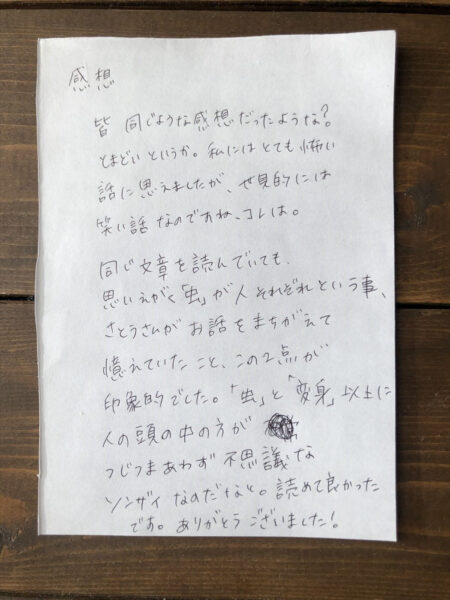 感想
皆 同じような感想だったような?
とまどいというか。私にはとても怖い
話に思えましたが、世間的には
笑い話なのですね、コレは。
同じ文章を読んでいても、
思いえがく「虫」が人それぞれという事、
さとうさんがお話をまちがえて
憶えていたこと、この2点が
印象的でした。「虫」と「変身」以上に
人の頭の中の方が
つじつまあわず不思議な
ソンザイなのだなと。読めて良かった
です。ありがとうございました!